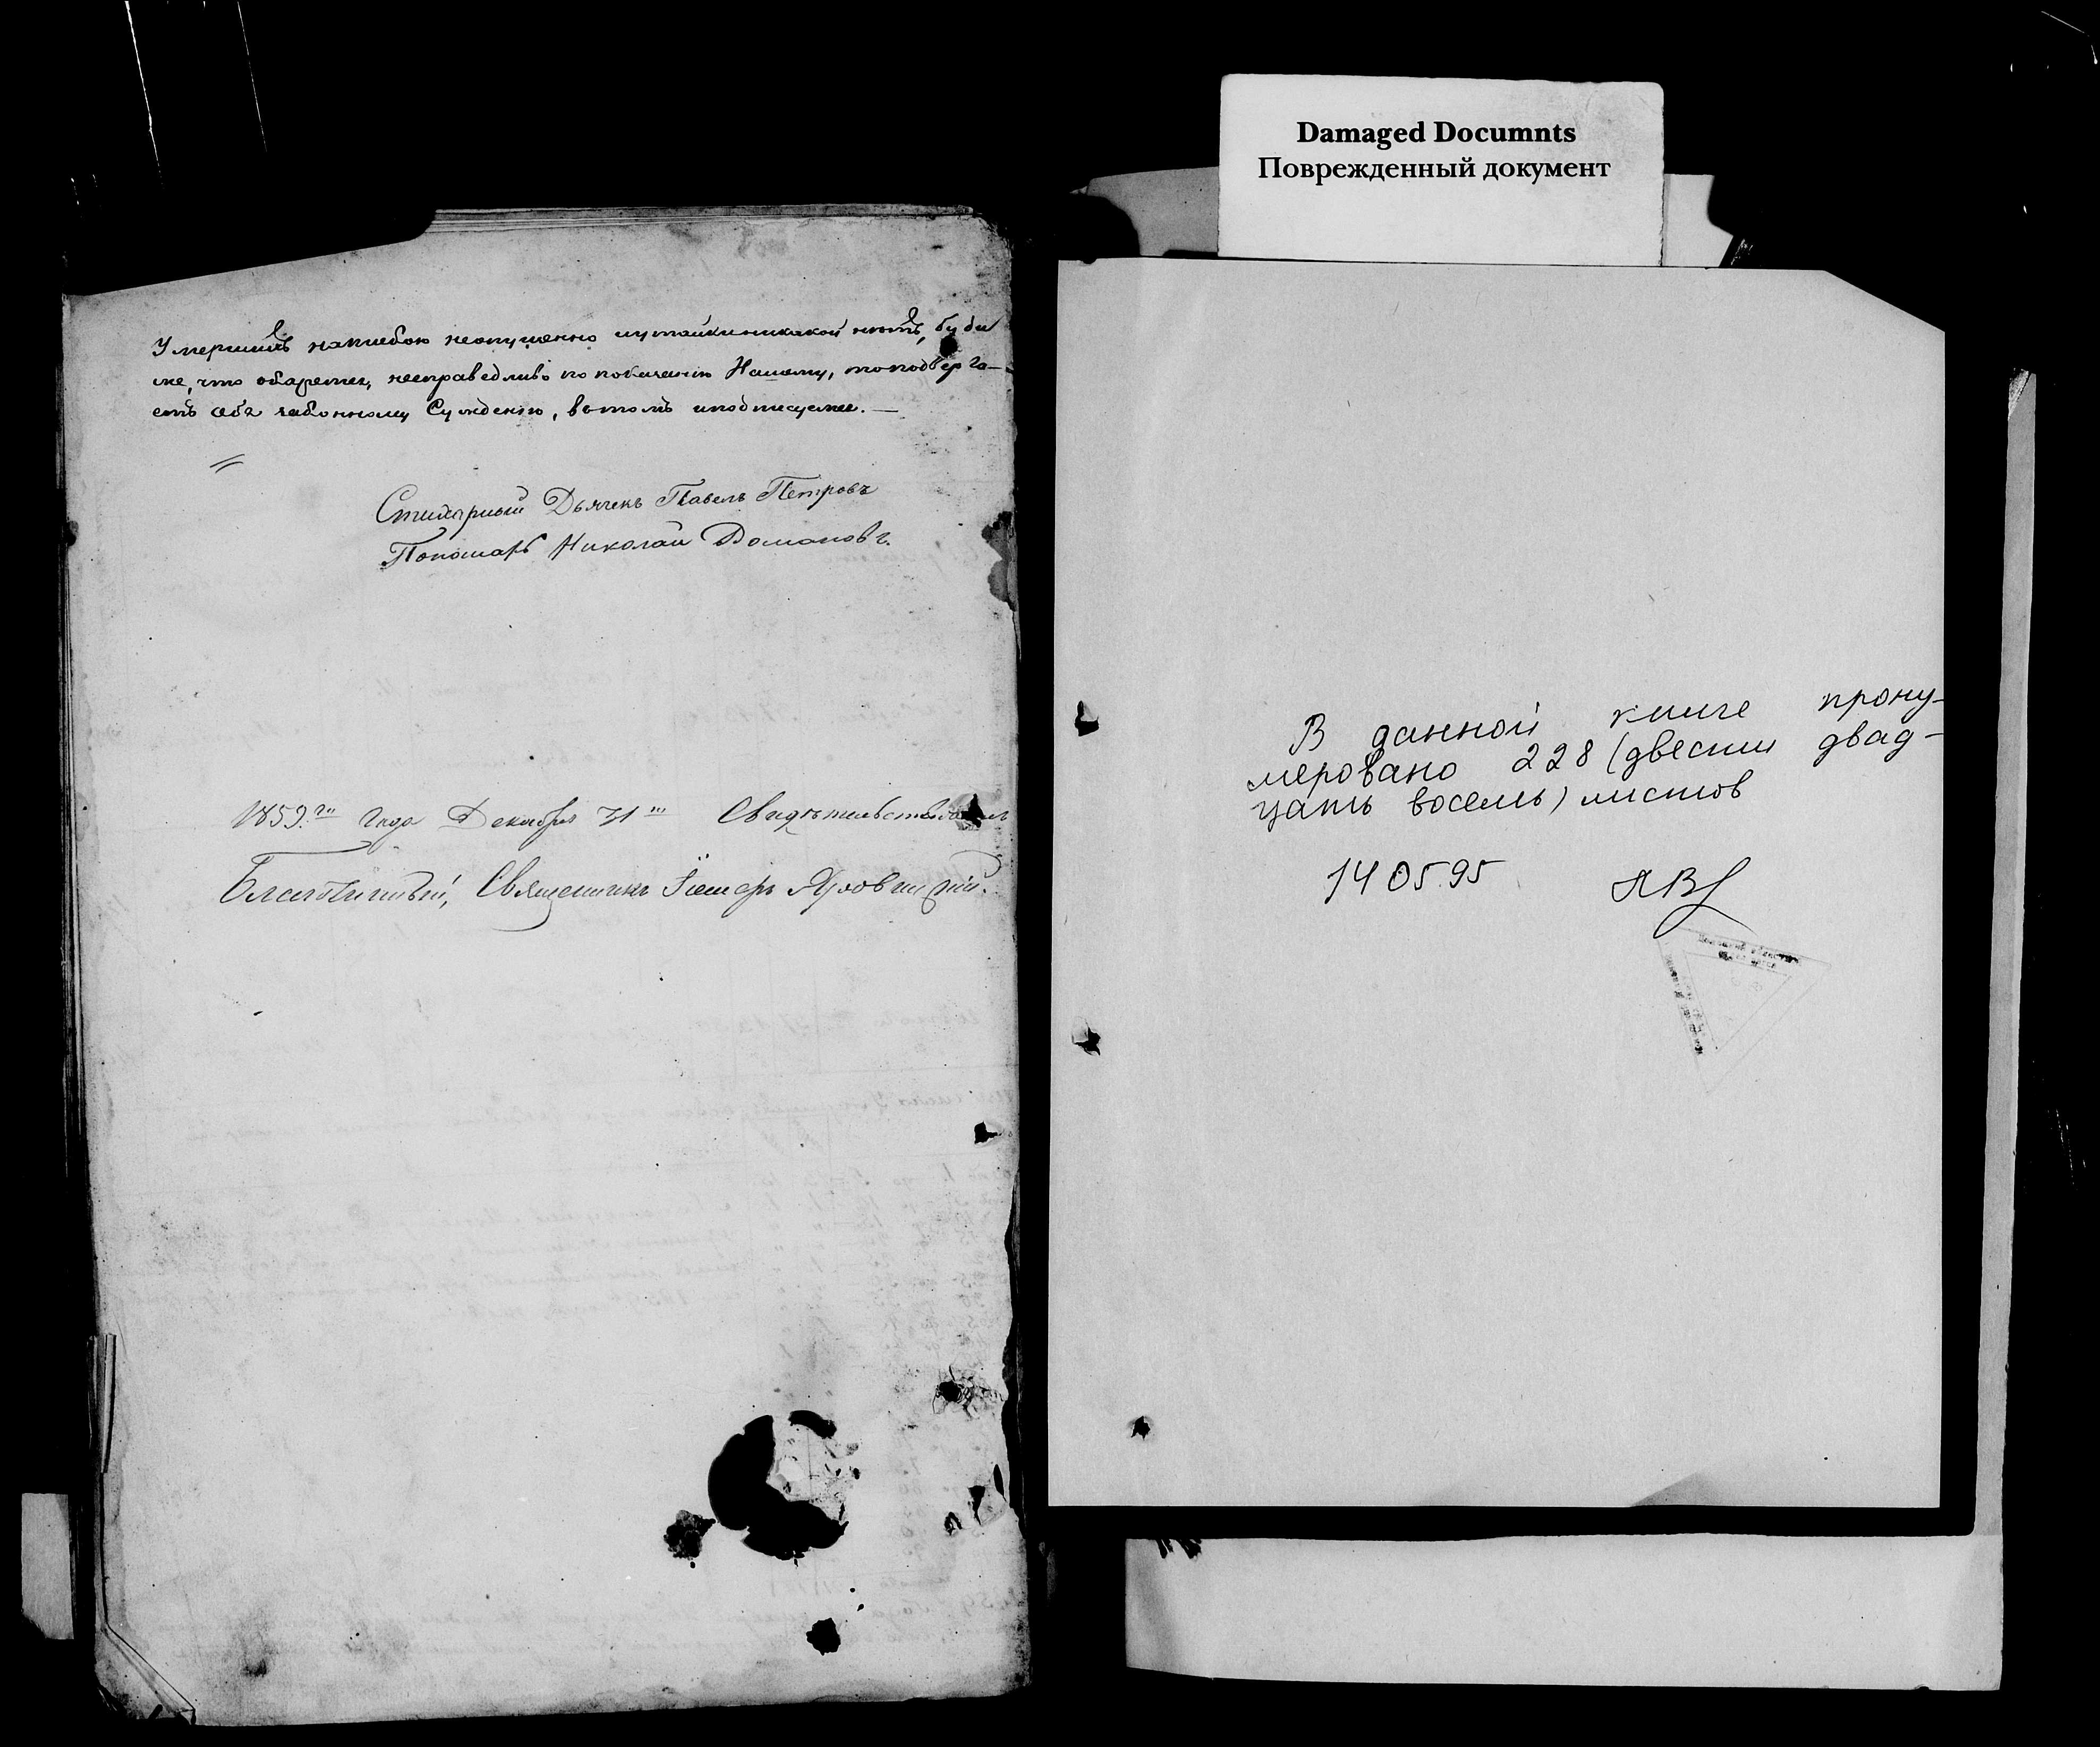 Умершихъ никого неопущенно и утайки никакой нѣтъ, буди
же, что окажется несправедливо по показанію Нашему, то подверга-
емъ себя законному Сужденію, въ томъ и подписуемся. —
Стихарный Дьячекъ Павелъ Петровъ
Пономарь Николай Домановъ.
1859.го Года Декабря 31го Свидѣтельствовалъ
Благочинный, Священникъ
Damaged Documnts
Поврежденный документ
В данной книге прону-
меровано 228 (двести двад-
цать восемь) листов
14 05.95